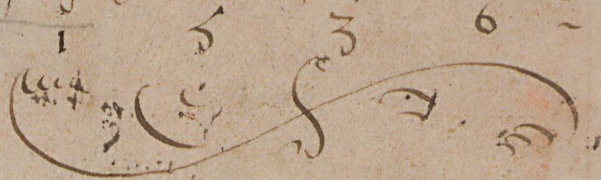 1 5 3 6